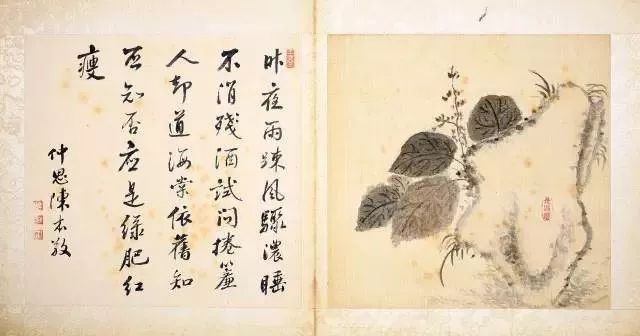 昨夜雨踈風驟濃睡
不消殘酒試問捲簾
人却道海棠依舊知
否知否應是綠肥紅
瘦
仲思陳本敬